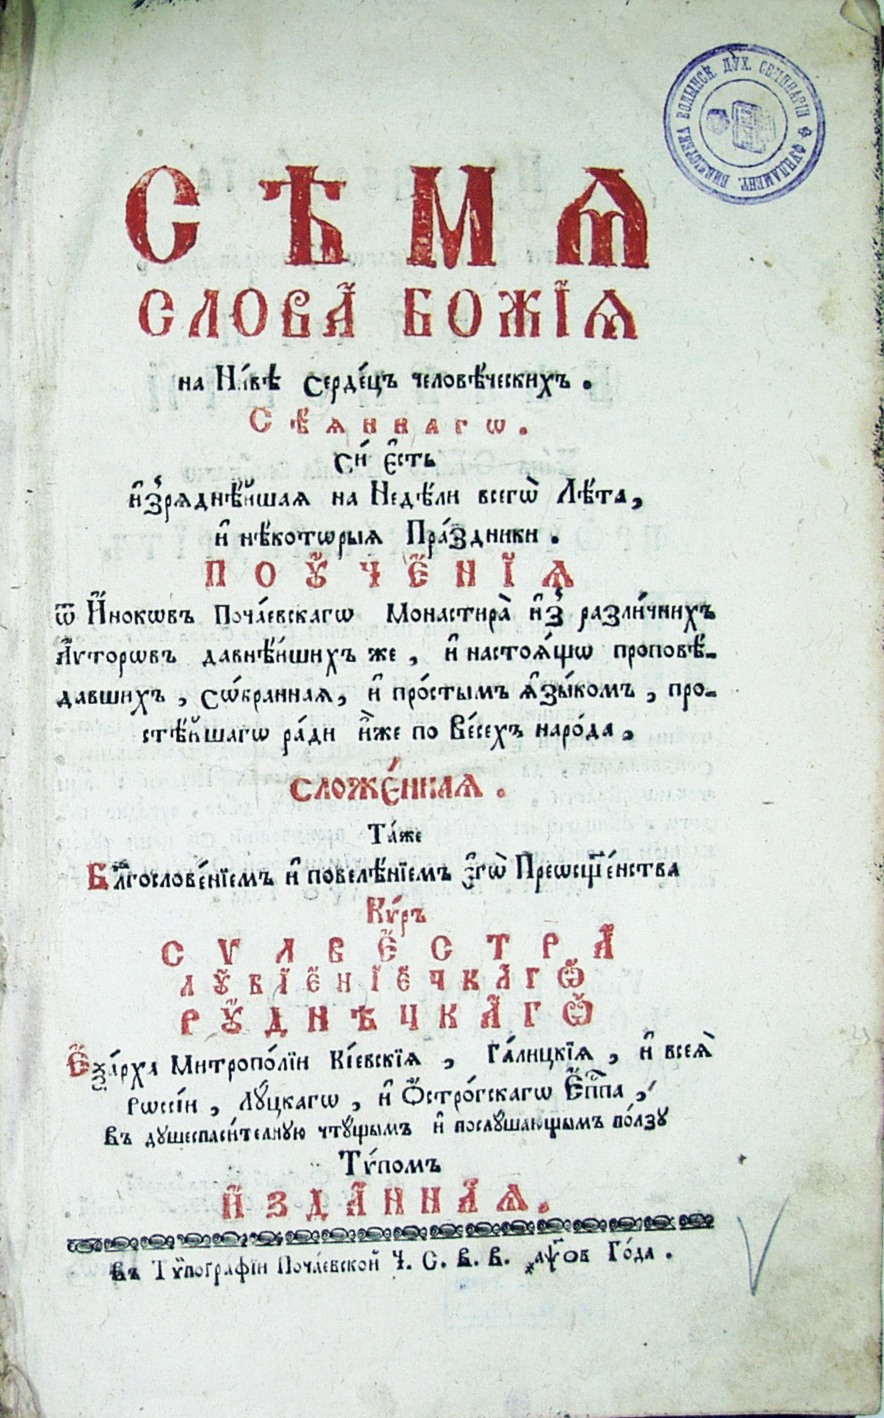 СѢМѦ
СЛОВА̀ БОЖЇѦ
на Ни́вѣ Серде́цъ человѣ́ческихъ .
СѢ́ѦННАГѠ .
Сѝ є҆́сть
и҆зрѧднѣ́йшаѧ на Недѣ́ли всегѡ̀ Лѣ́та ,
и҆ нѣ́котѡрыѧ Пра́здники .
ПОꙊЧЕ́НЇѦ
ѿ И҆́нокѡвъ Поча́евскагѡ Монастирѧ̀ и҆з̾ разли́чнихъ
А҆́ѵторѡвъ давнѣ́йшихъ же , и҆ настоѧ́щѡ проповѣ́-
давшихъ , сѡ́бранная , и҆ про́стымъ ѧ҆зы́комъ , про-
стѣ́йшагѡ ра́ди и҆̀же по Ве́сехъ наро́да ,
сложе́ннаѧ .
Та́же
Благослове́нїемъ и҆ повелѣ́нїемъ є҆гѡ̀ Преѡсщ҃е́нства
Кѵ́ръ
СѴЛВЕ́СТРА
ЛꙊБЇЕ́НЇЕ́ЦКАГѠ
РꙊДНѢЦКАГѠ
Е҆ѯа́рха Митропо́лїи Кі́евскїѧ , Га́лицкїѧ , и҆ всеѧ̀
Рѡссі́и , Лꙋ́цкагѡ , и҆ Ѻ҆стро́гскагѡ Е҆п҃па ,
въ душеспаси́телную чтꙋ́щымъ и҆ послꙋ́шающымъ по́лзу
Тѵ́помъ
И҆ЗДА́ННАѦ .
въ Тѵ̈пографїи Поча́евской Ч. С. В. В. ҂аѱ҃ов Го́да .
БИБЛІОТЕКА ВОЛЫНСК. ДУХ. СЕМИНАРІИ ФУНДАМЕНТ.